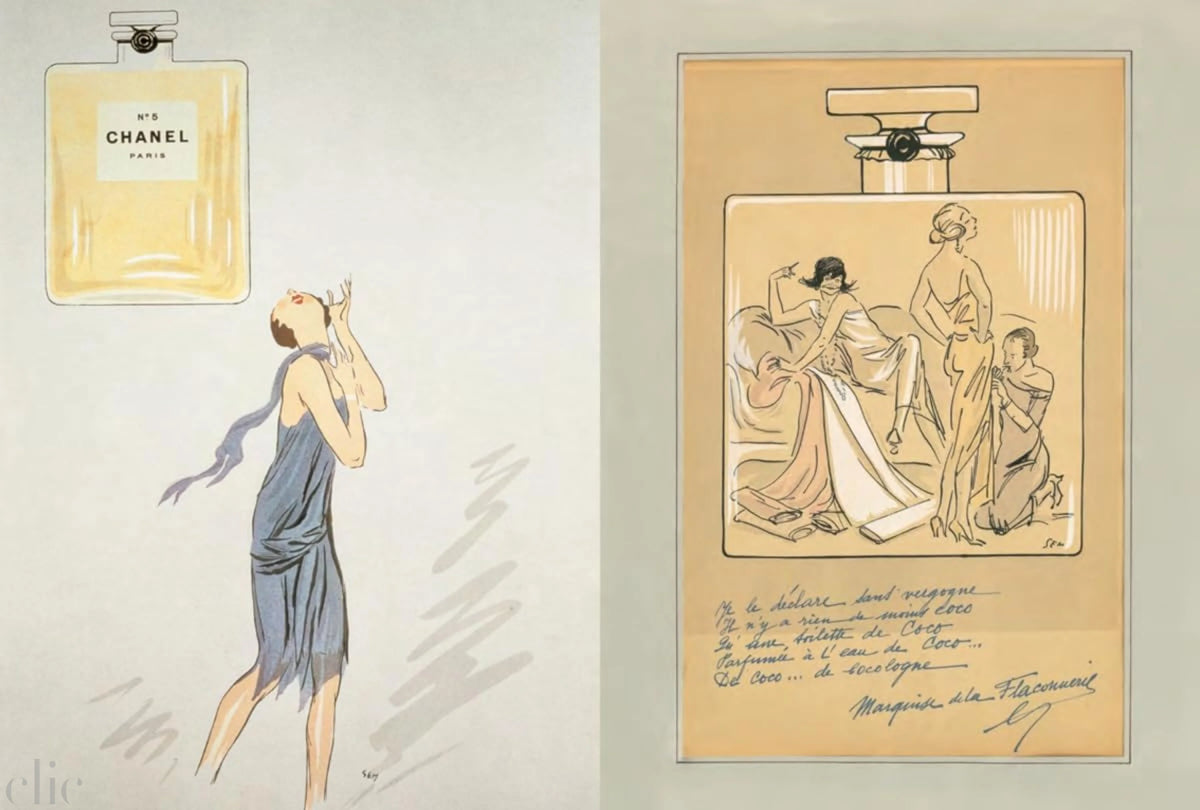 N° 5
CHANEL
PARIS
SEM
clic
SEM
Je le déclare sans vergogne
Il n'y a rien de moins coco
Qu'une toilette de Coco
Parfumée à L'eau de Coco...
De Coco... de Cocologne
Marquise de la Flaconnerie